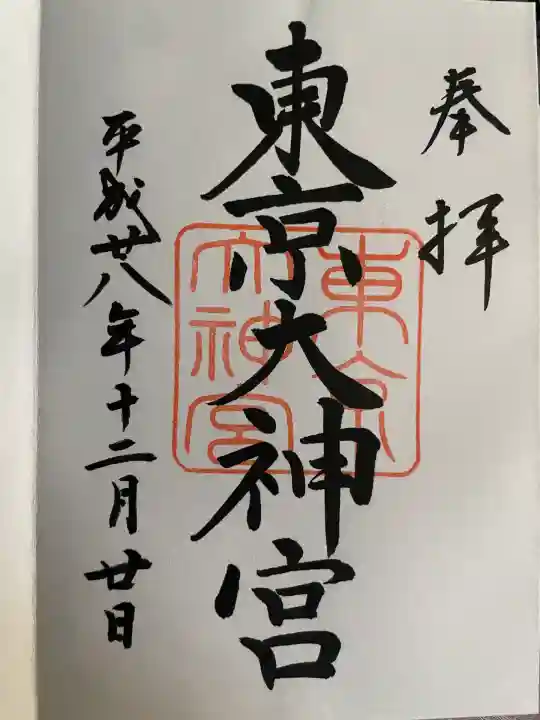 奉拝
東京大神宮
東京
大神宮
平成廿八年十二月廿日